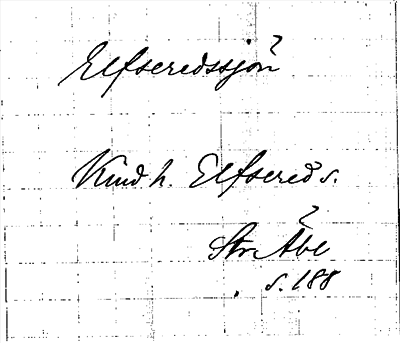 Elfseredssjön
Kind h. Elfsereds s.
Str Åbe
s. 188